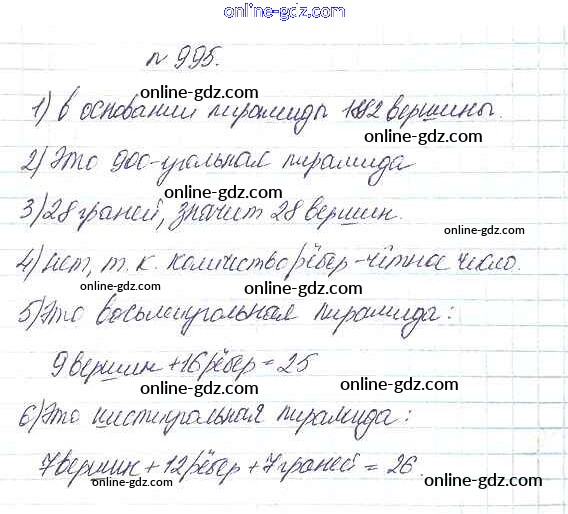 online-gdz.com
№ 995.
online-gdz.com
1) В основании пирамиды 192 вершины.
online-gdz.com
2) Это 900-угольная пирамида
online-gdz.com
3) 28 граней, значит 28 вершин.
online-gdz.com
4) нет, т. к. количество рёбер - чётное число.
online-gdz.com
5) Это восьмиугольная пирамида:
online-gdz.com
9 вершин + 16 рёбер = 25
online-gdz.com
6) Это шестиугольная пирамида:
online-gdz.com
7 вершин + 12 рёбер + 7 граней = 26.
online-gdz.com
online-gdz.com